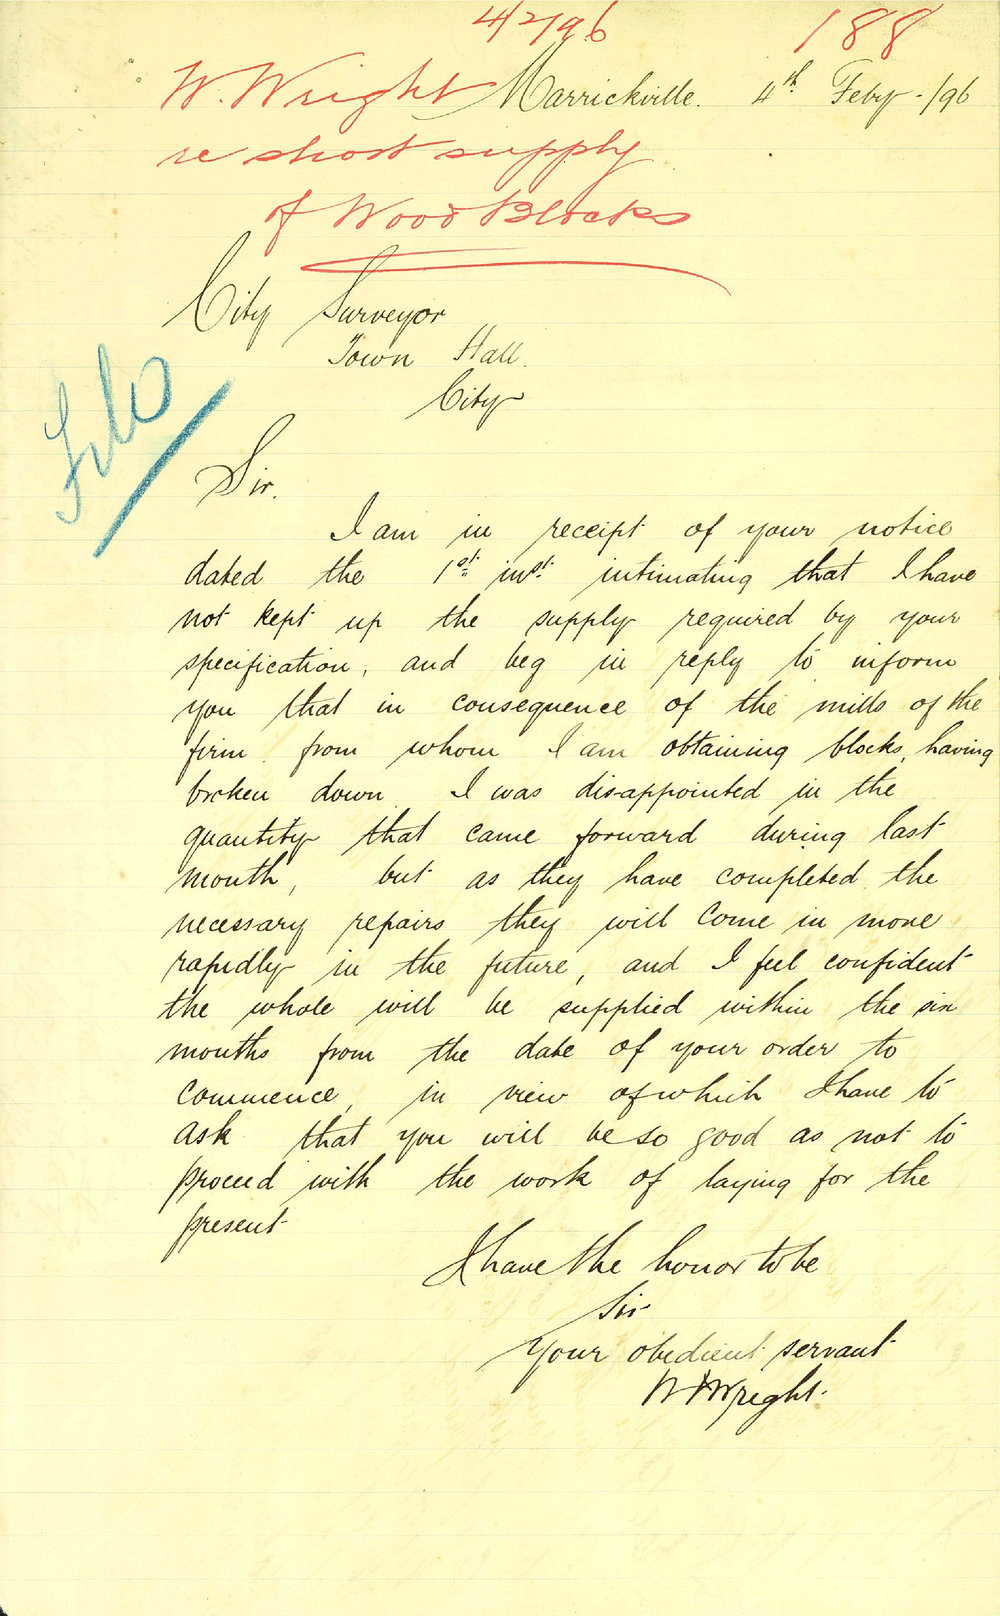 4/2/96
188
W. Wright
Marrickville. 4th Feby -/96
re short supply
of Wood Blocks
City Surveyor
Town Hall.
City
File
Sir.
I am in receipt of your notice
dated the 1st inst. intimating that I have
not kept up the supply required by your
specification, and beg in reply to inform
you that in consequence of the mills of the
firm from whom I am obtaining blocks, having
broken down I was disappointed in the
quantity that came forward during last
month, but as they have completed the
necessary repairs they will come in more
rapidly in the future, and I feel confident
the whole will be supplied within the six
months from the date of your order to
commence, in view of which I have to
ask that you will be so good as not to
proceed with the work of laying for the
present
I have the honor to be
Sir
Your obedient servant
W Wright.